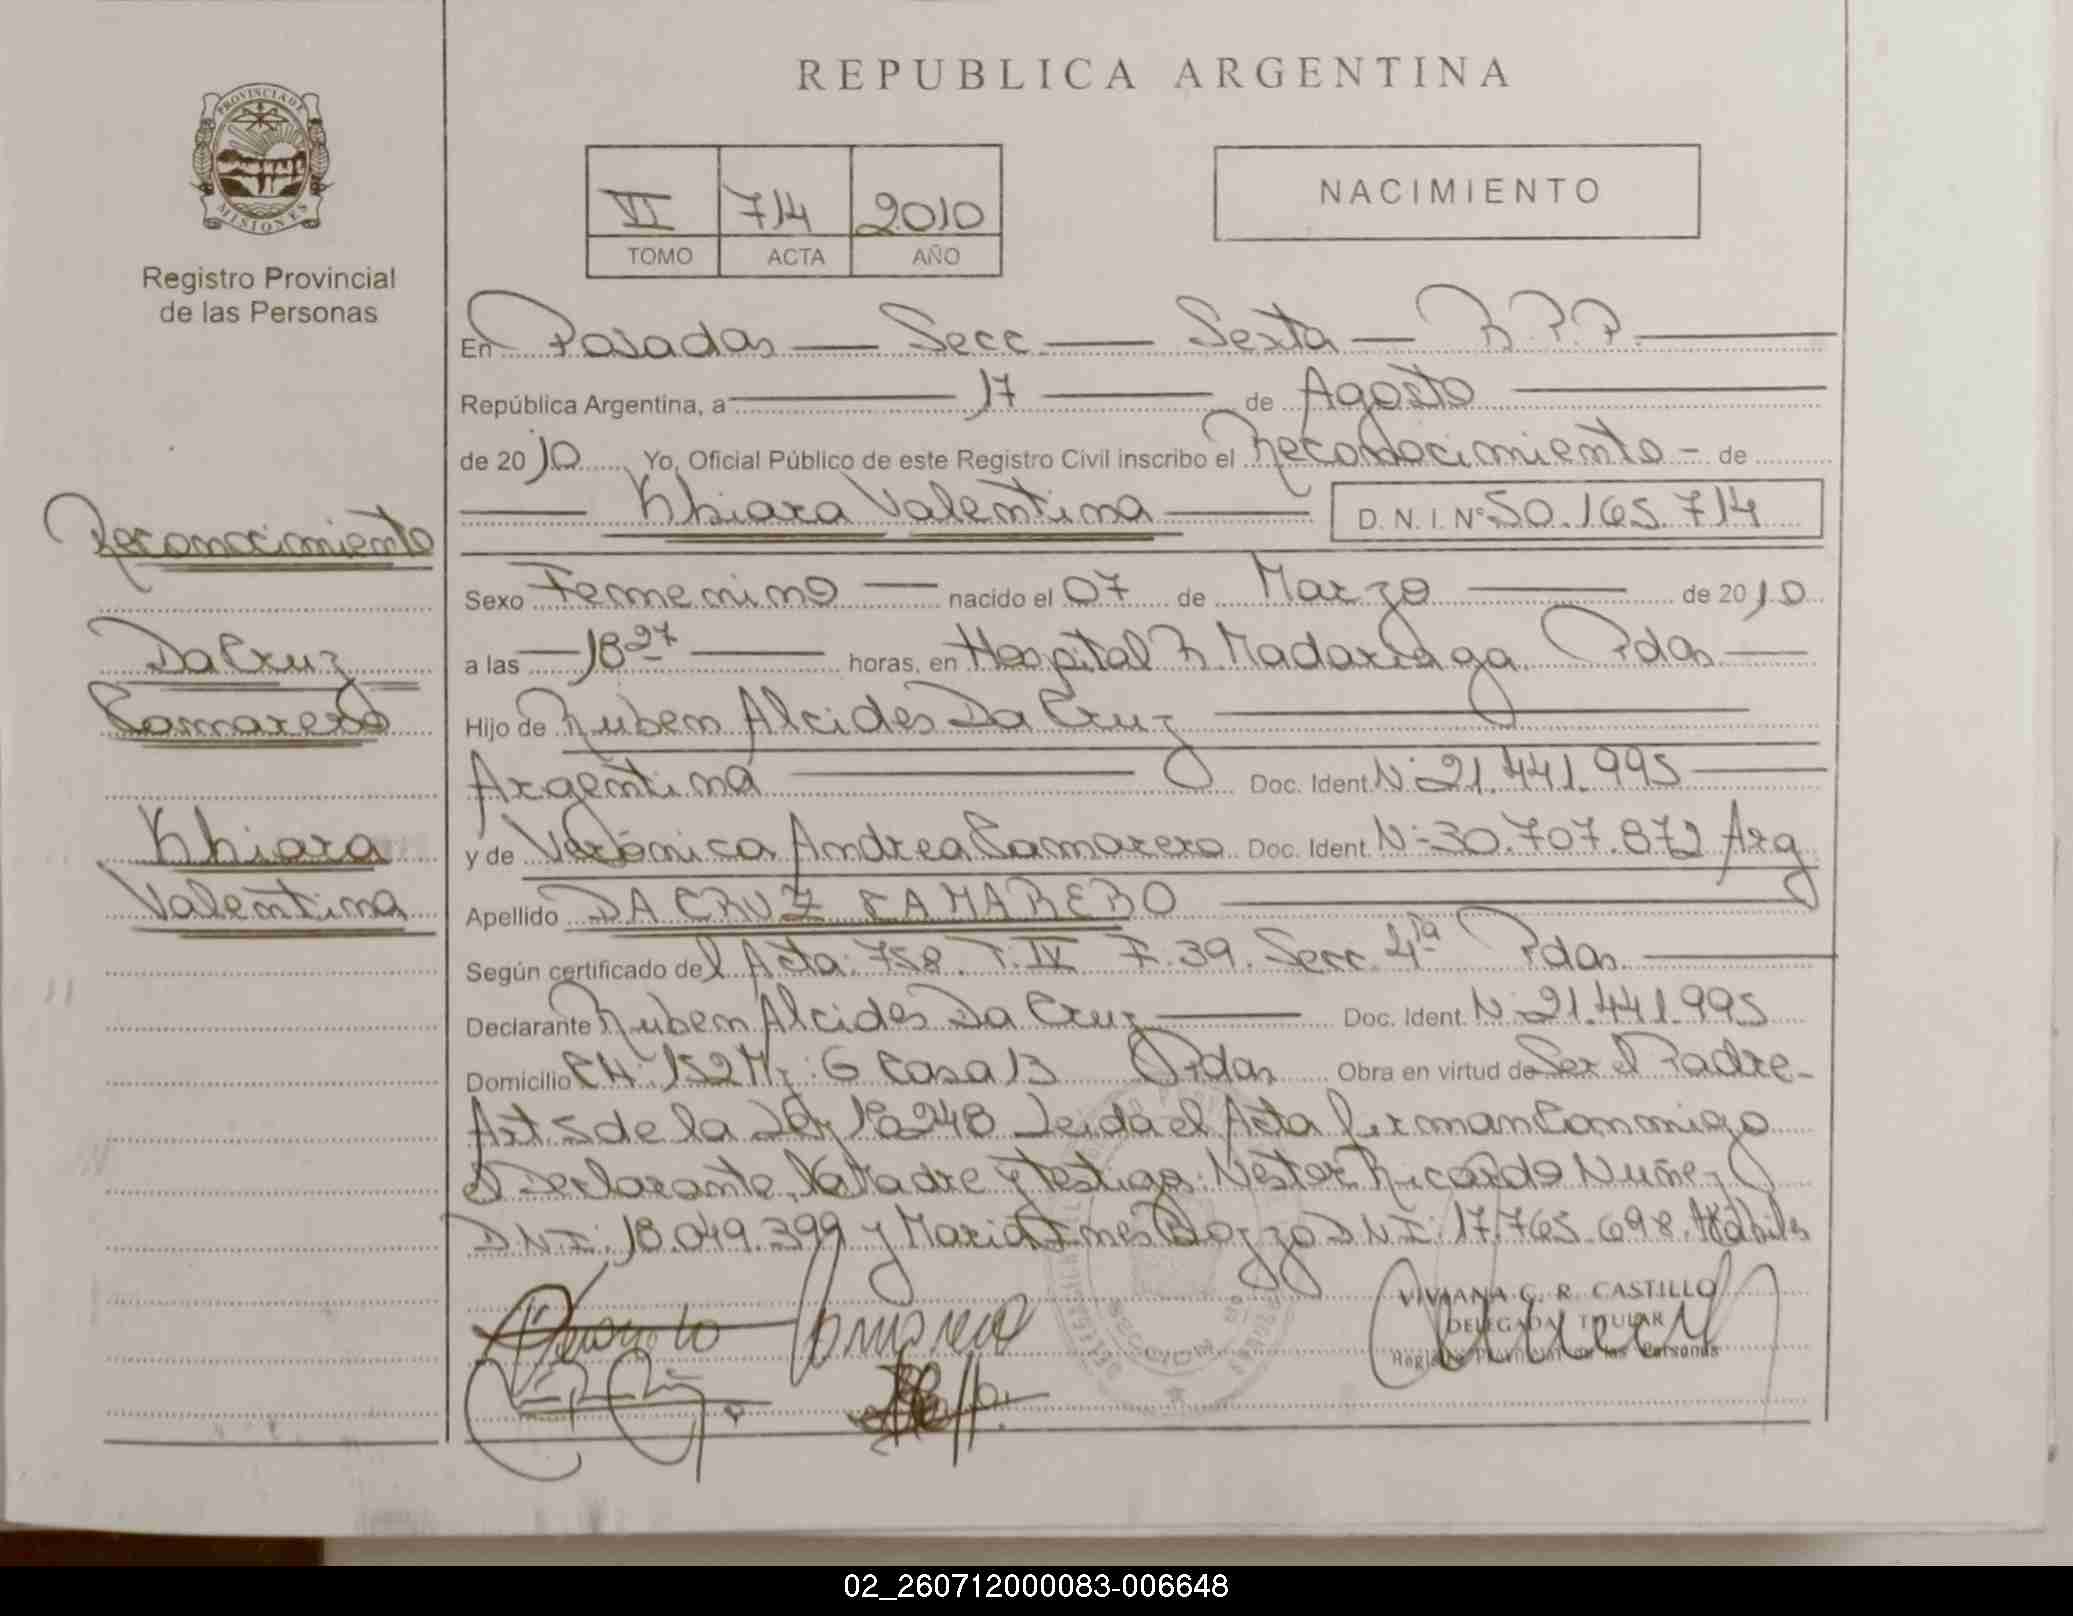 PROVINCIA DE
MISIONES
Registro Provincial
de las Personas
Reconocimiento
Da Cruz
Camarero
Khiara
Valentina
REPUBLICA ARGENTINA
VI 714 2010
TOMO ACTA AÑO
NACIMIENTO
En Posadas — Secc — Sexta — R.P.P.
República Argentina, a 17 de Agosto
de 2010 Yo, Oficial Público de este Registro Civil inscribo el Reconocimiento - de
Khiara Valentina D. N. I. Nº 50.165.714
Sexo Femenino nacido el 07 de Marzo de 2010
a las 18 27 horas, en Hospital R. Madariaga Pdas
Hijo de Ruben Alcides Da Cruz
Argentina Doc. Ident. N: 21.441.995
y de Verónica Andrea Camarero Doc. Ident. N: 30.707.872 Arg
Apellido DA CRUZ CAMARERO
Según certificado del Acta: 758. T. IV F. 39. Secc 4ta Pdas
Declarante Ruben Alcides Da Cruz Doc. Ident. N: 21.441.995
Domicilio CH: 152 Mz: G Casa 13 Pdas Obra en virtud de Ser el Padre-
Art 5 de la Ley 18248 Leida el Acta firman Conmigo
el Declarante, la Madre y testigos: Néstor Ricardo Nuñez
DNI: 18.049.399 y Maria Ines Bozzo DNI: 17.765.698. Hábiles
VIVIANA G. R. CASTILLO
DELEGADA TITULAR
Registro Provincial de las Personas
02_260712000083-006648